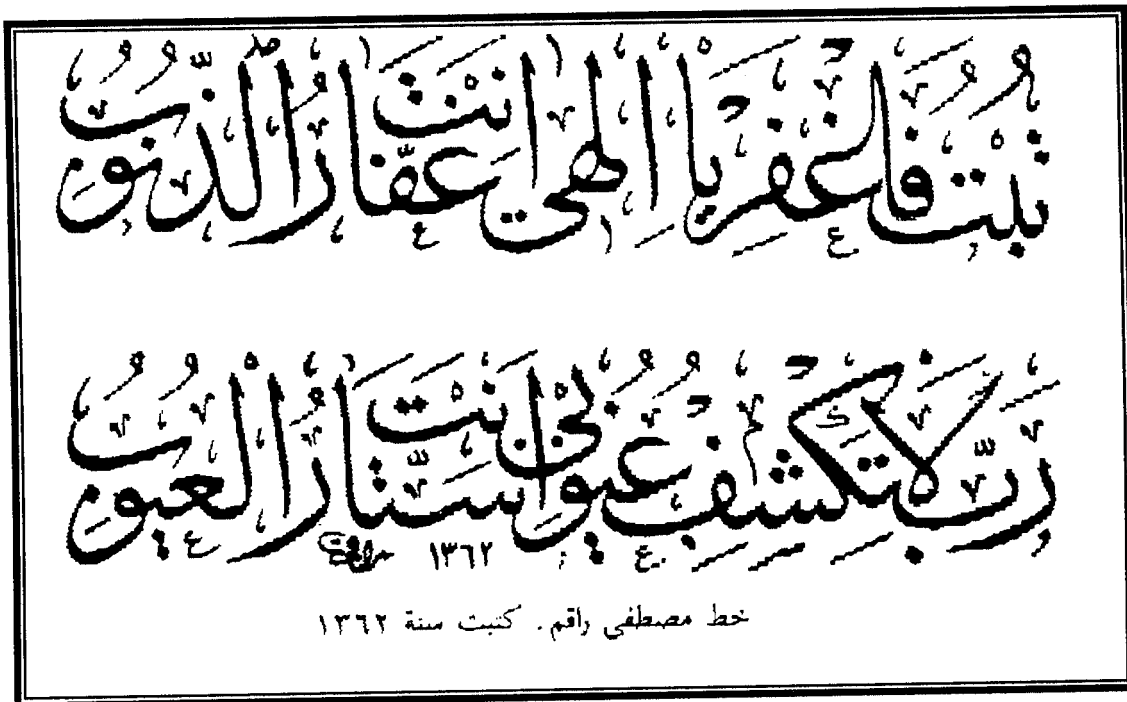 تُبْتُ فَاغْفِرْ يَا إِلٰهِي أَنْتَ غَفَّارُ الذُّنُوبِ
رَبِّ لَا تَكْشِفْ عُيُوبِي أَنْتَ سَتَّارُ الْعُيُوبِ
راقم ١٣٦٢
خط مصطفى راقم. كتبت سنة ١٣٦٢